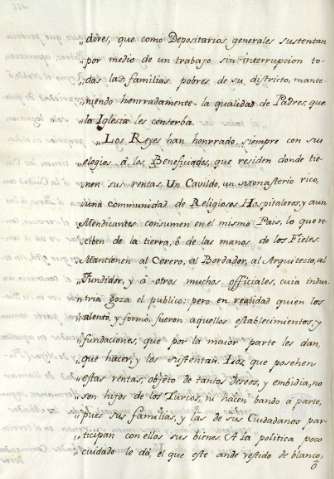 dores, que como Depositarios generales sustentan
„por medio de un trabajo sin interrupcion to-
„das las familias pobres de su districto, mante-
„niendo honrradamente la qualidad de Padres, que
„la Iglesia les conserba.
„Los Reyes han honrreado siempre con sus
„elogios á los Beneficiados, que residen donde tie-
„nen sus rentas. Un Cavildo, un monasterio rico,
„una Communidad de Religiosos Hospitalares, y aun
„Mendicantes consumen en el mismo Pais, lo que re-
„ciben de la tierra, ó de las manos de los Fieles
„Mantienen al Cerero, al Bordador, al Arquitecto, al
„Fundidor, y á otros muchos officiales, cuia indus-
„tria goza el publico; pero en realidad quien los
„alentó, y formó fueron aquellos establecimientos, y
„fundaciones, que por la maior parte les dan,
„que hacer, y les sustentan. Los que posehen
„estas rentas, objeto de tantos deseos, y embidia, no
„son hijos de las Turcos, ni hacen bando á parte,
„pues sus familias, y las de sus Ciudadanos par-
„ticipan con ellos sus bienes. A la politica poco
„cuidado le dá, el que este ande vestido de blanco,